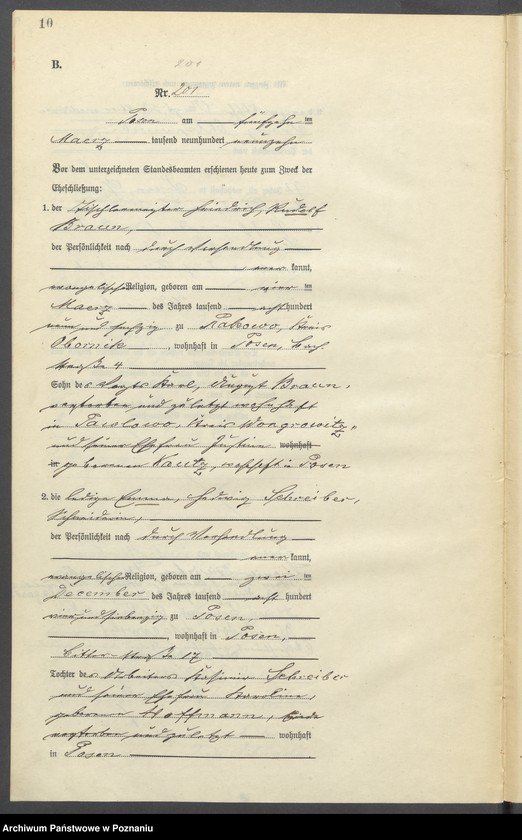 10
B.
201
Nr. 201
Posen am fünfzehn ten
Maerz tausend neunhundert neunzehn
Vor dem unterzeichneten Standesbeamten erschienen heute zum Zweck der
Eheschließung:
1. der Tischlermeister Friedrich, Rudolf
Braun,
der Persönlichkeit nach durch Verhandlung
aner kannt,
evangelischer Religion, geboren am vier ten
Maerz des Jahres tausend acht hundert
neun und fünfzig zu Rakowo, Kreis
Obornik, wohnhaft in Posen,
straße 4
Sohn des Vogts Karl, August Braun,
verstorben und zuletzt wohnhaft
in Pawlowo, Kreis Wongrowitz,
und seiner Ehefrau Justine wohnhaft
in geborenen, wohnhaft in Posen
2. die ledige Emma, Hedwig Schreiber,
Schneiderin,
der Persönlichkeit nach durch Verhandlung
aner kannt,
evangelischer Religion, geboren am zwei ten
December des Jahres tausend acht hundert
vier und siebenzig zu Posen,
wohnhaft in Posen,
straße 17
Tochter des Arbeiters Kasimir Schreiber
und seiner Ehefrau Karoline,
geborenen Hoffmann, beide
verstorben und zuletzt wohnhaft
in Posen
Archiwum Państwowe w Poznaniu